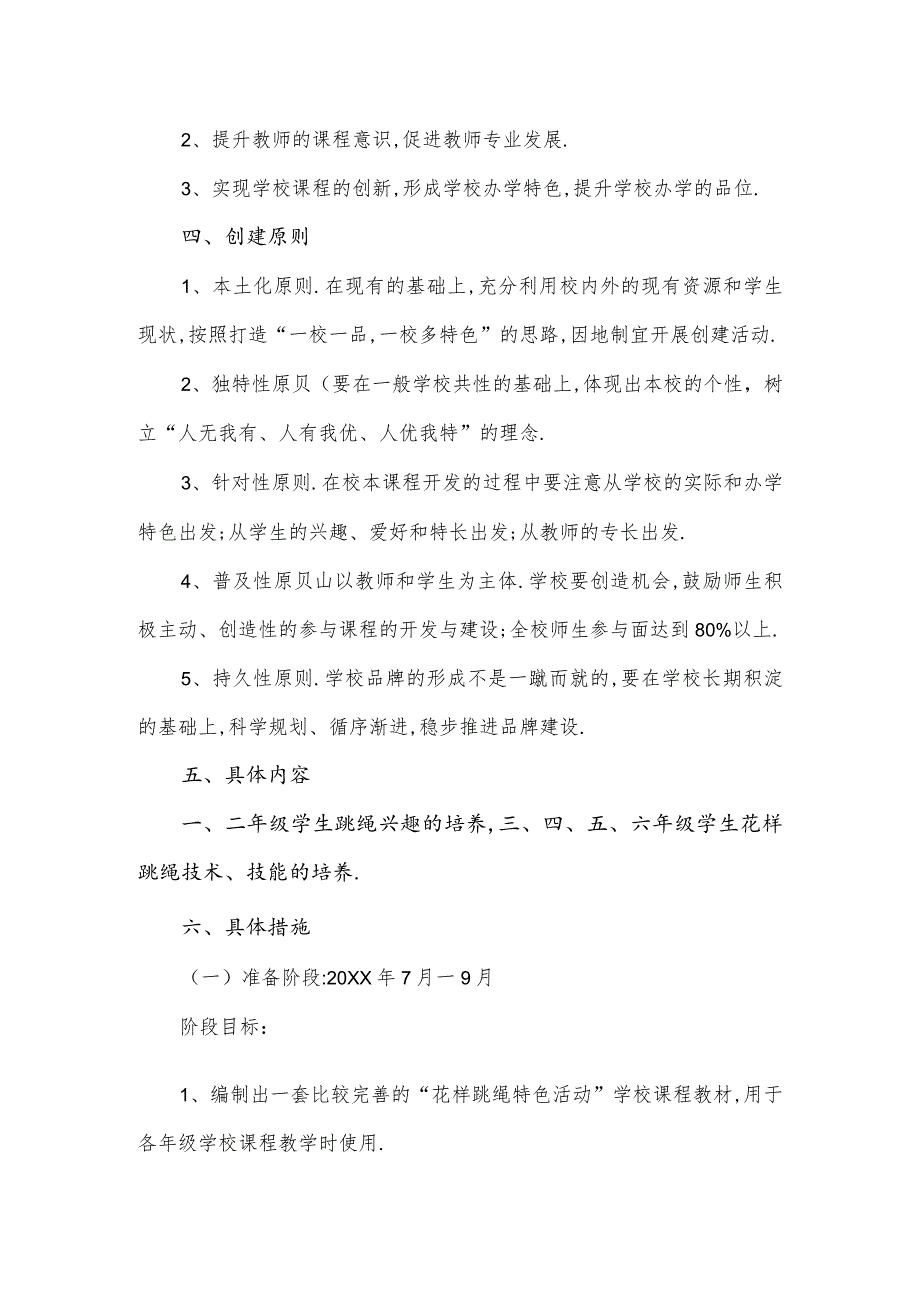 2、提升教师的课程意识,促进教师专业发展.
3、实现学校课程的创新,形成学校办学特色,提升学校办学的品位.
四、创建原则
1、本土化原则.在现有的基础上,充分利用校内外的现有资源和学生
现状,按照打造“一校一品,一校多特色”的思路,因地制宜开展创建活动.
2、独特性原贝（要在一般学校共性的基础上,体现出本校的个性，树
立“人无我有、人有我优、人优我特”的理念.
3、针对性原则.在校本课程开发的过程中要注意从学校的实际和办学
特色出发;从学生的兴趣、爱好和特长出发;从教师的专长出发.
4、普及性原贝山以教师和学生为主体.学校要创造机会,鼓励师生积
极主动、创造性的参与课程的开发与建设;全校师生参与面达到80%以上.
5、持久性原则.学校品牌的形成不是一蹴而就的,要在学校长期积淀
的基础上,科学规划、循序渐进,稳步推进品牌建设.
五、具体内容
一、二年级学生跳绳兴趣的培养,三、四、五、六年级学生花样
跳绳技术、技能的培养.
六、具体措施
（一）准备阶段:20XX年7月一9月
阶段目标：
1、编制出一套比较完善的“花样跳绳特色活动”学校课程教材,用于
各年级学校课程教学时使用.